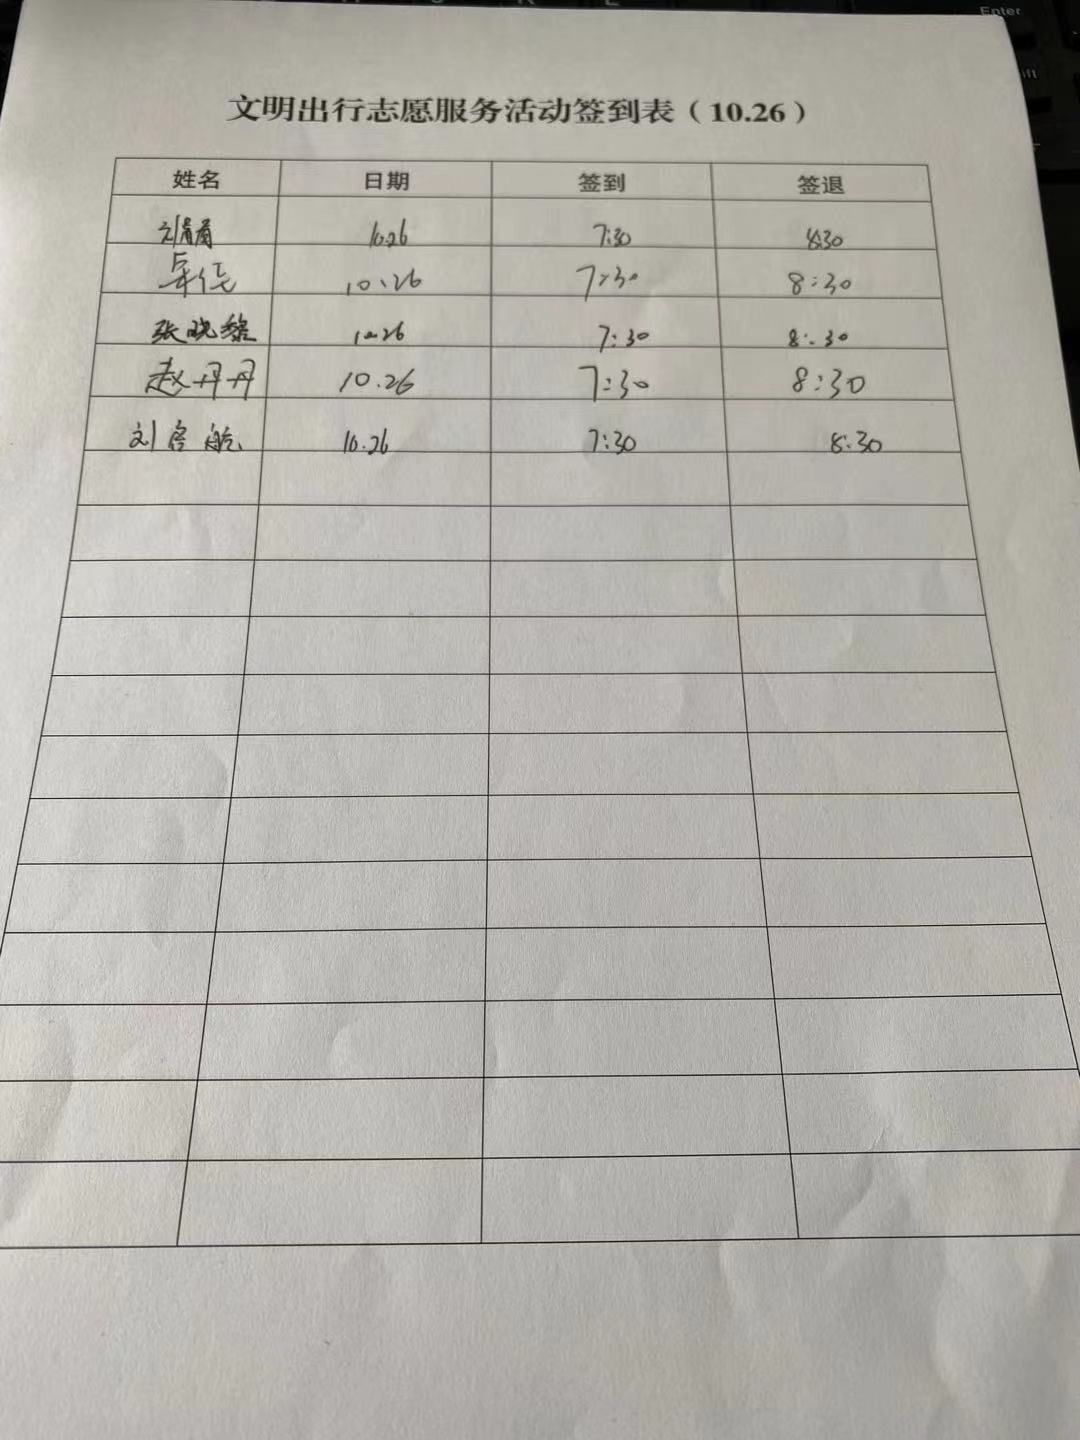 Enter
文明出行志愿服务活动签到表（10.26）
姓名 日期 签到 签退
刘 10.26 7:30 8:30
10.26 7:30 8:30
张晓黎 10.26 7:30 8:30
赵丹丹 10.26 7:30 8:30
刘启航 10.26 7:30 8:30